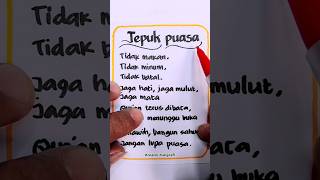 Tepuk puasa
Tidak makan.
Tidak minum.
Tidak batal.
Jaga hati, jaga mulut,
Jaga mata
Qur'an terus dibaca,
menunggu buka
bangun sahur
Jangan lupa puasa.